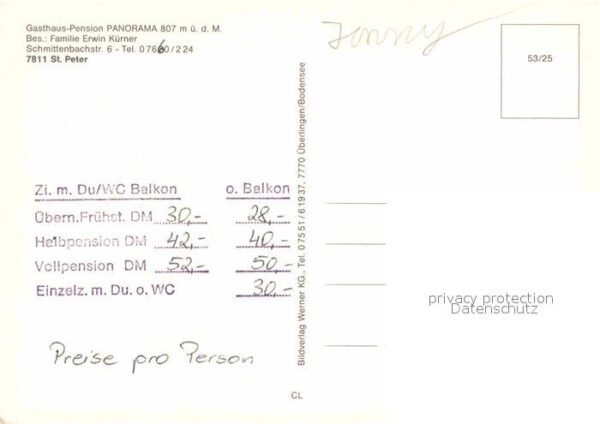 Gasthaus-Pension PANORAMA 807 m ü. d. M.
Bes.: Familie Erwin Kürner
Schmittenbachstr. 6 - Tel. 07660/224
7811 St. Peter
Jonny
53/25
Zi. m. Du/WC Balkon o. Balkon
Übern.Frühst. DM 30,- 28,-
Halbpension DM 42,- 40,-
Vollpension DM 52,- 50,-
Einzelz. m. Du. o. WC 30,-
Preise pro Person
Bildverlag Werner KG., Tel. 07551/61937, 7770 Überlingen/Bodensee
CL
privacy protection
Datenschutz